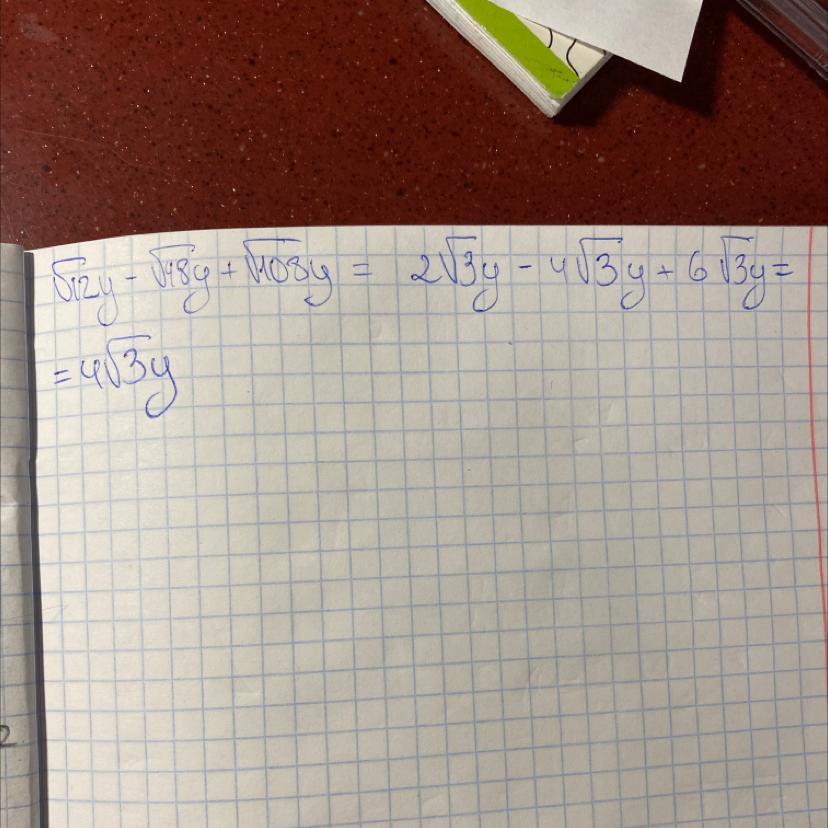 √12y - √48y + √108y = 2√3y - 4√3y + 6√3y =
= 4√3y
2